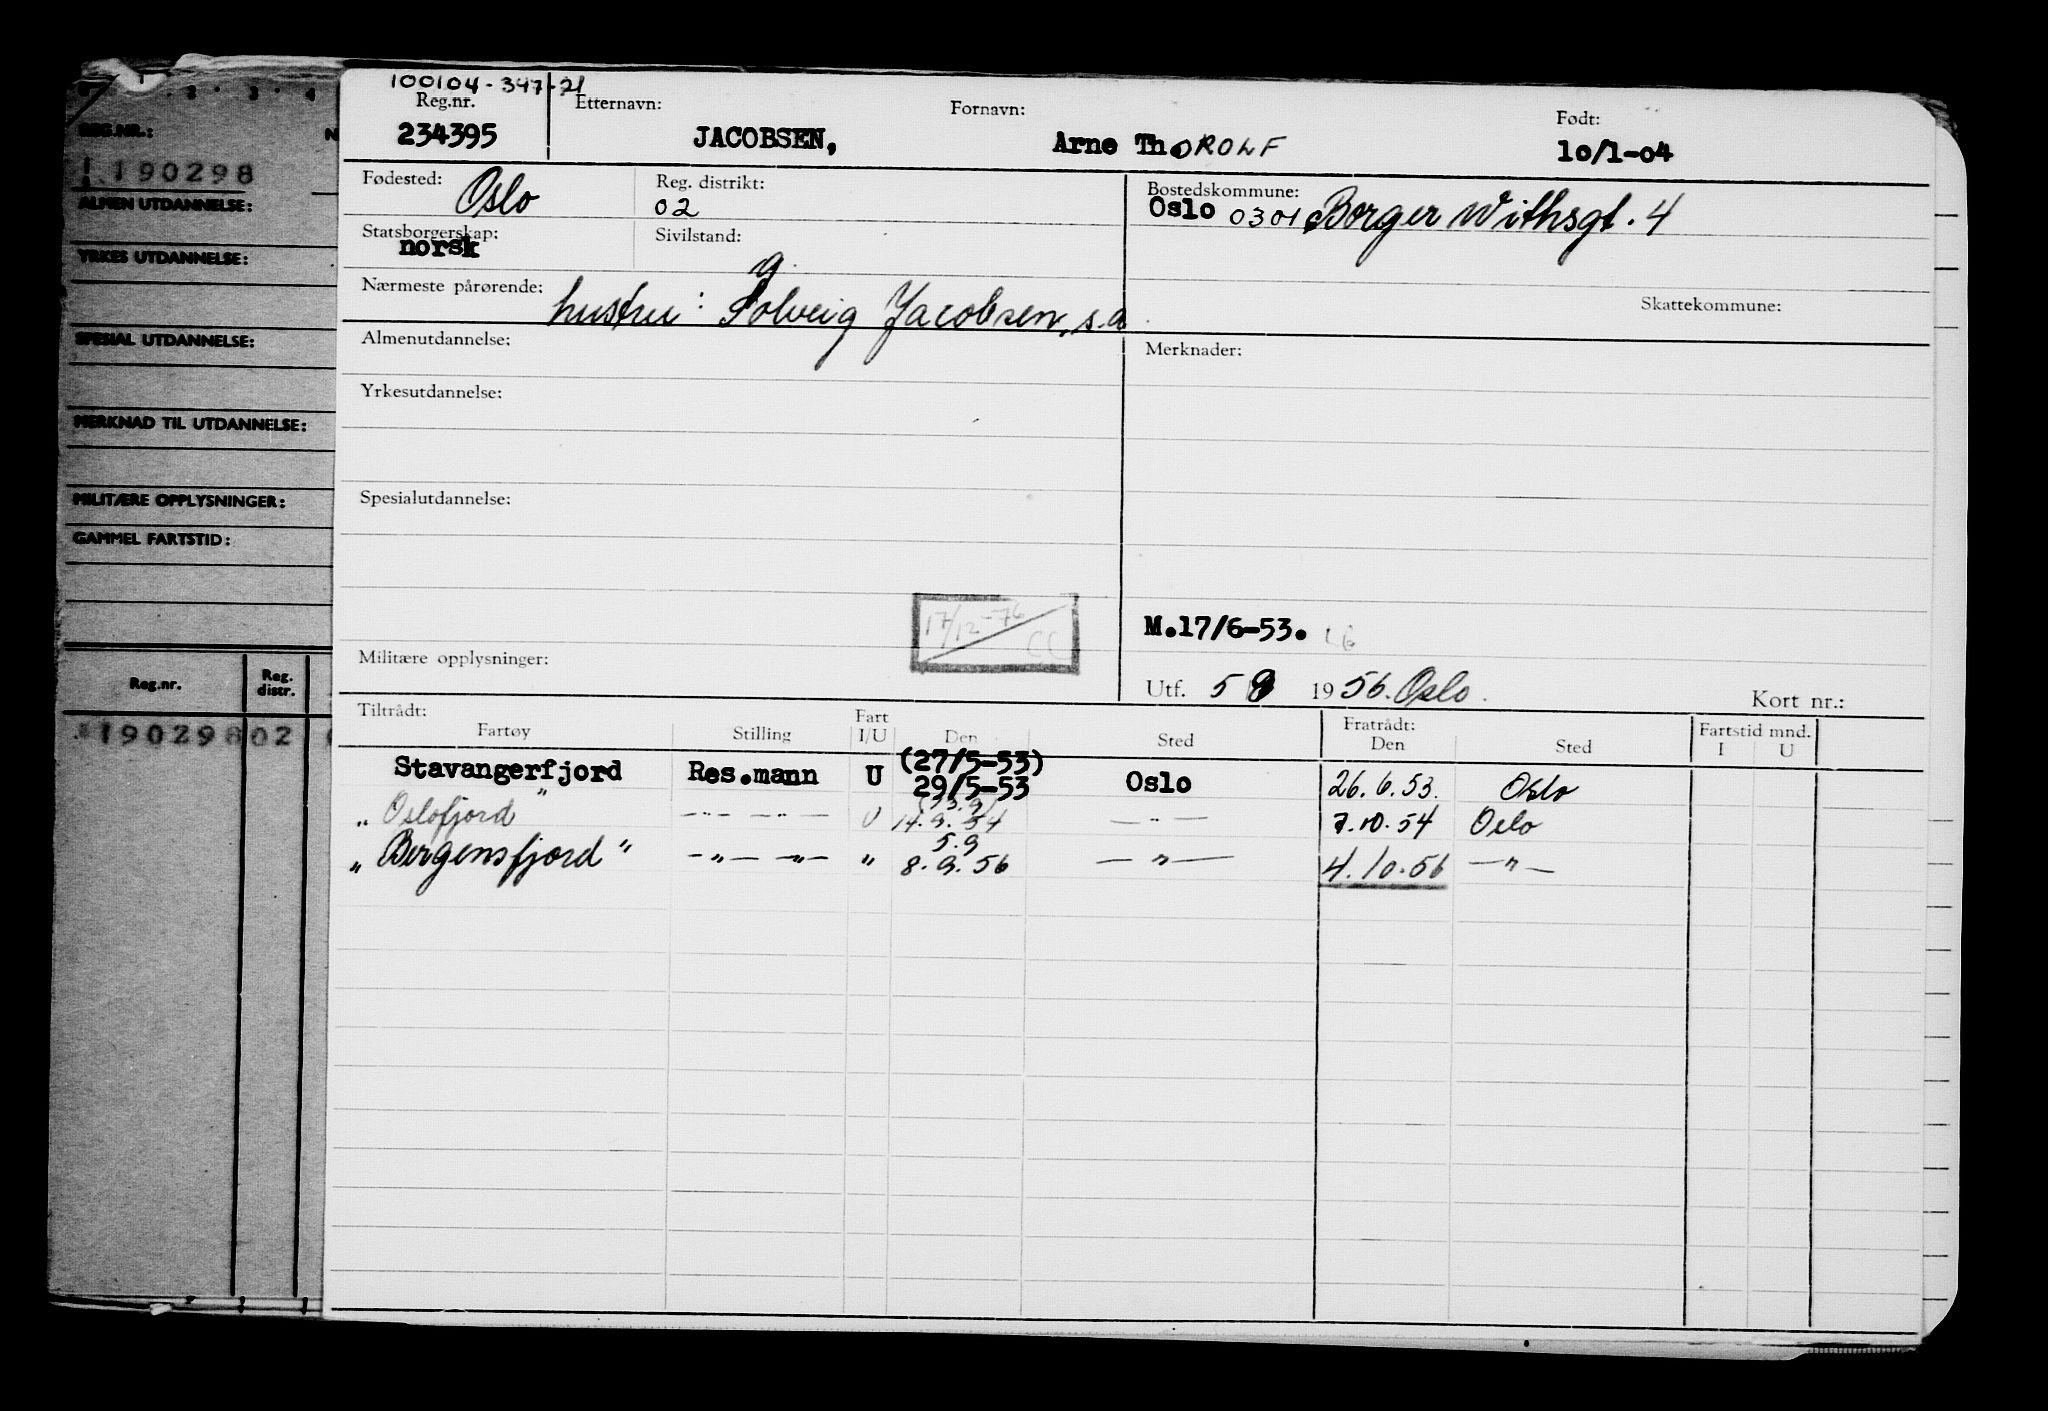 2 . 3 . 4
REG.NR.: N
190298
ALMEN UTDANNELSE:
YRKES UTDANNELSE:
SPESIAL UTDANNELSE:
MERKNAD TIL UTDANNELSE:
MILITÆRE OPPLYSNINGER:
GAMMEL FARTSTID:
Reg.nr. Reg. distr.
190298 02
100104-347-21
Reg.nr. Etternavn: Fornavn: Født:
234395 JACOBSEN, Arne ThOROLF 10/1-04
Fødested: Oslo Reg. distrikt: 02 Bostedskommune:
Oslo 0301 Borger Withsgt. 4
Statsborgerskap: norsk Sivilstand: g.
Nærmeste pårørende: hustru: Solveig Jacobsen, s.a. Skattekommune:
Almenutdannelse: Merknader:
Yrkesutdannelse:
Spesialutdannelse:
17/12-76 CC
M.17/6-53.
Militære opplysninger:
Utf. 5 9 1956. Oslo. Kort nr.:
Tiltrådt: Fratrådt: Fartstid mnd.
Fartøy Stilling Fart I/U Den Sted Den Sted I U
Stavangerfjord Res.mann U (27/5-53) 29/5-53 Oslo 26.6.53. Oslo
" Oslofjord " —"— —"— U (13.9) 14.9.54 —"— 7.10.54 Oslo
" Bergensfjord " —"— —"— " 5.9 8.9.56 —"— 4.10.56 —"—